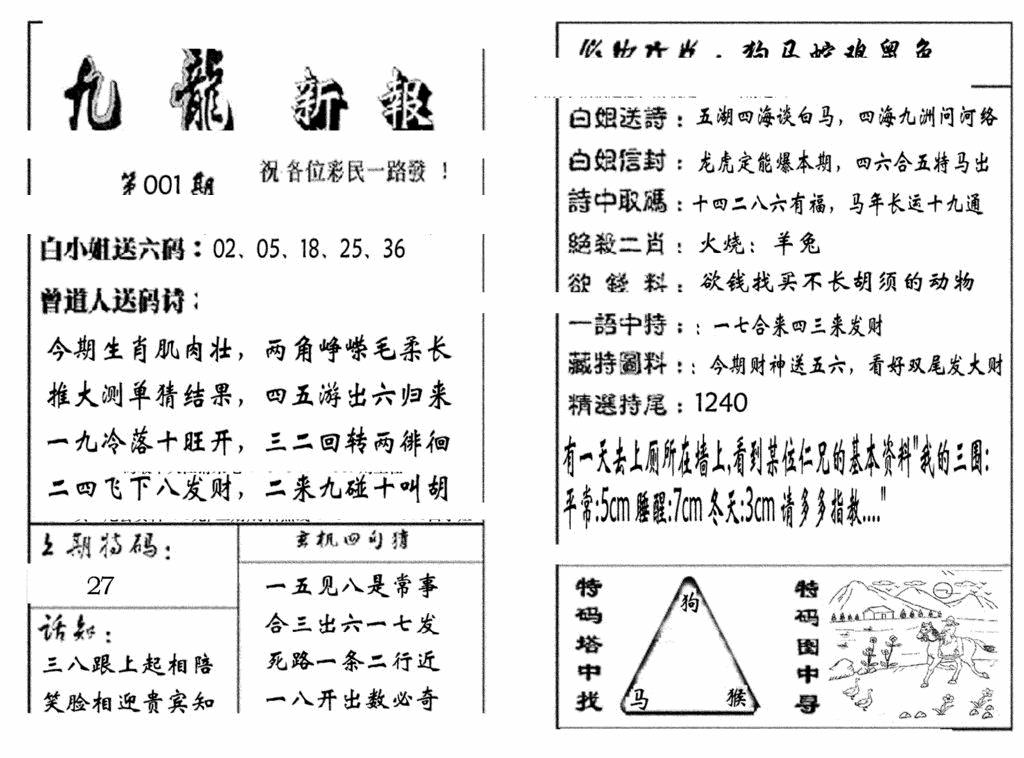 九龍新報
第001期
祝各位彩民一路發！
白小姐送六码：02、05、18、25、36
曾道人送码诗：
今期生肖肌肉壮，两角峥嵘毛柔长
推大测单猜结果，四五游出六归来
一九冷落十旺开，三二回转两徘徊
二四飞下八发财，二来九碰十叫胡
上期特码：
27
话知：
三八跟上起相陪
笑脸相迎贵宾知
玄机四句猜
一五见八是常事
合三出六一七发
死路一条二行近
一八开出数必奇
狗马蛇鸡
白姐送詩：五湖四海谈白马，四海九洲问河络
白姐信封：龙虎定能爆本期，四六合五特马出
詩中取碼：十四二八六有福，马年长运十九通
絕殺二肖：火烧：羊兔
欲錢料：欲钱找买不长胡须的动物
一語中特：：一七合来四三来发财
藏特圖料：：今期财神送五六，看好双尾发大财
精選特尾：1240
有一天去上厕所在墙上,看到某位仁兄的基本资料"我的三围:
平常:5cm 睡醒:7cm 冬天:3cm 请多多指教...."
特码塔中找
狗
马
猴
特码图中寻